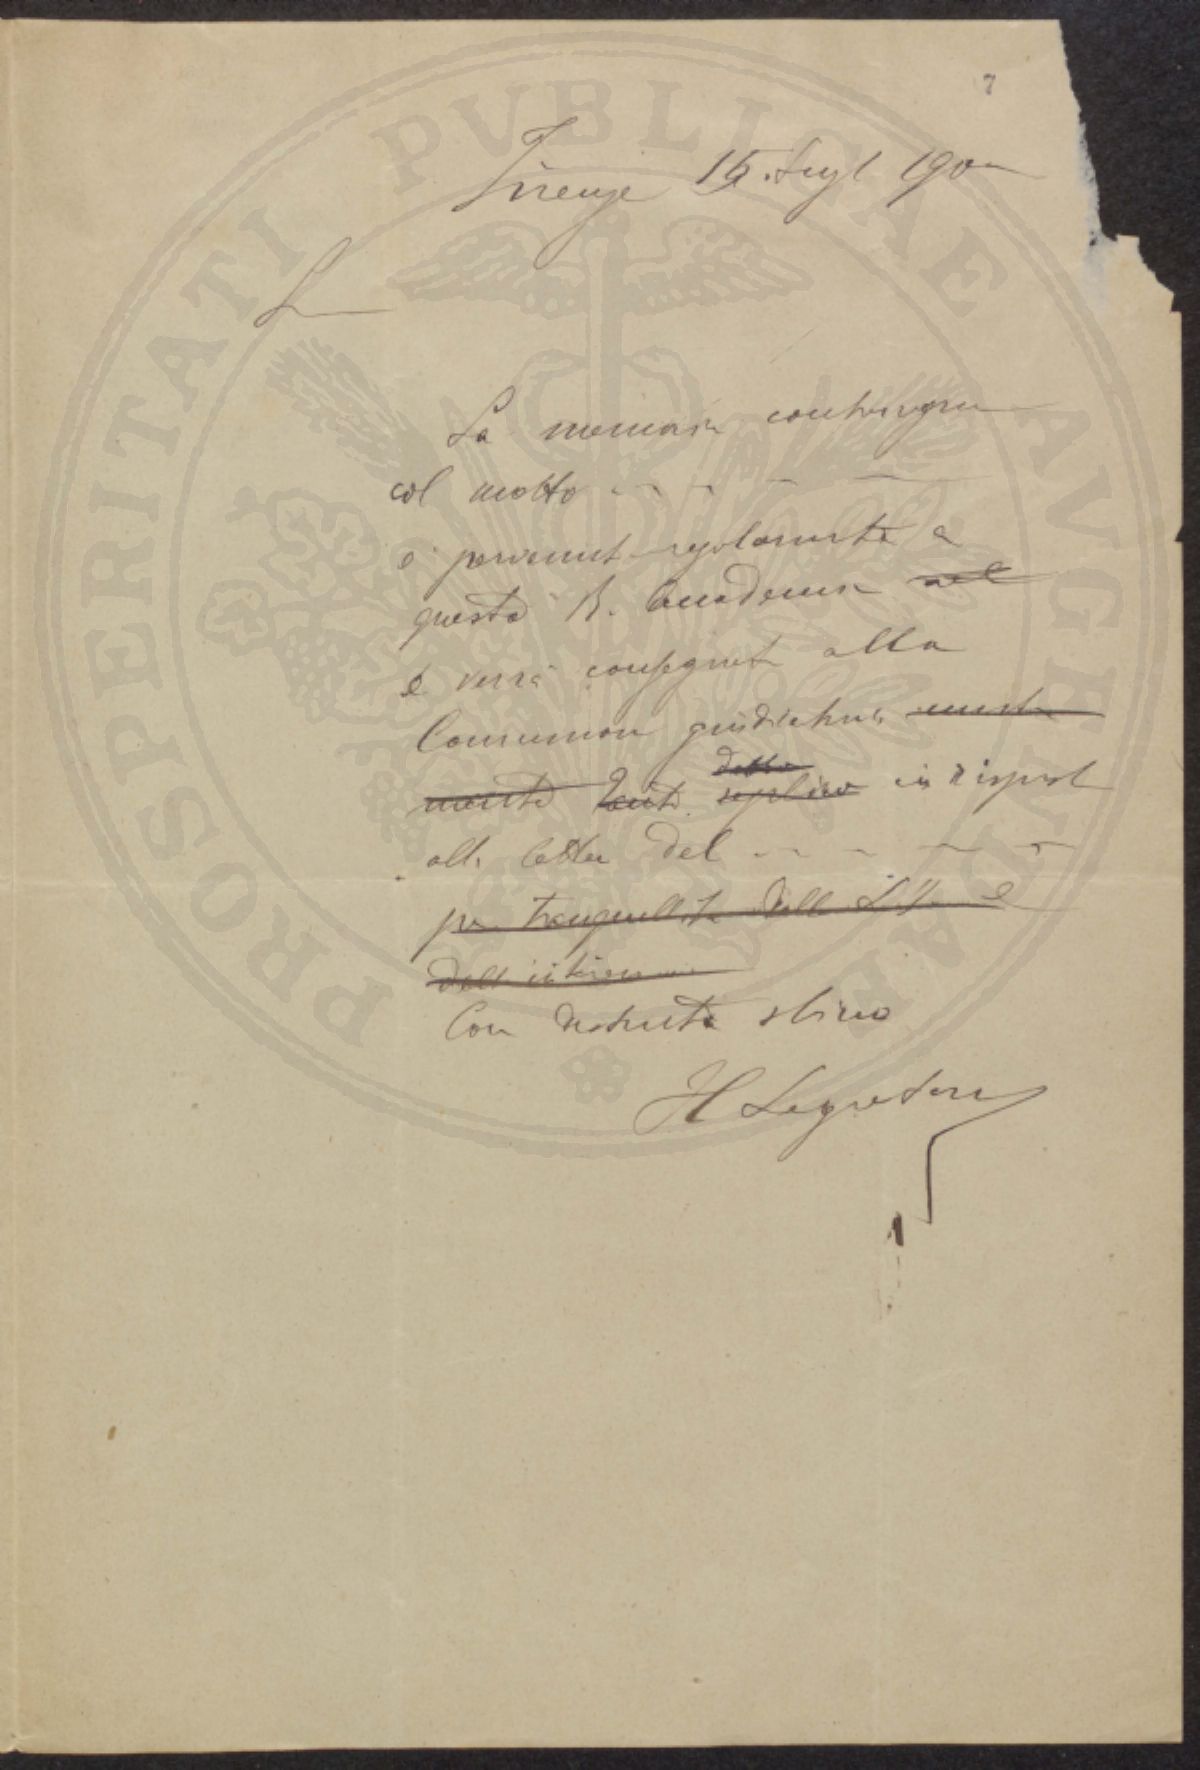 7
Firenze 15 Sept 900
L
La memoria contrassegna
col motto
è pervenuta regolarmente a
questa R. Accademia nel
e verrà consegnata alla
Commissione giudicatrice
in risposta
alla lettera del
per tranquillità della S. V. e
della interess
Con distinta stima
Il Segretario
PROSPERITATI PVBLICAE AVGENDAE